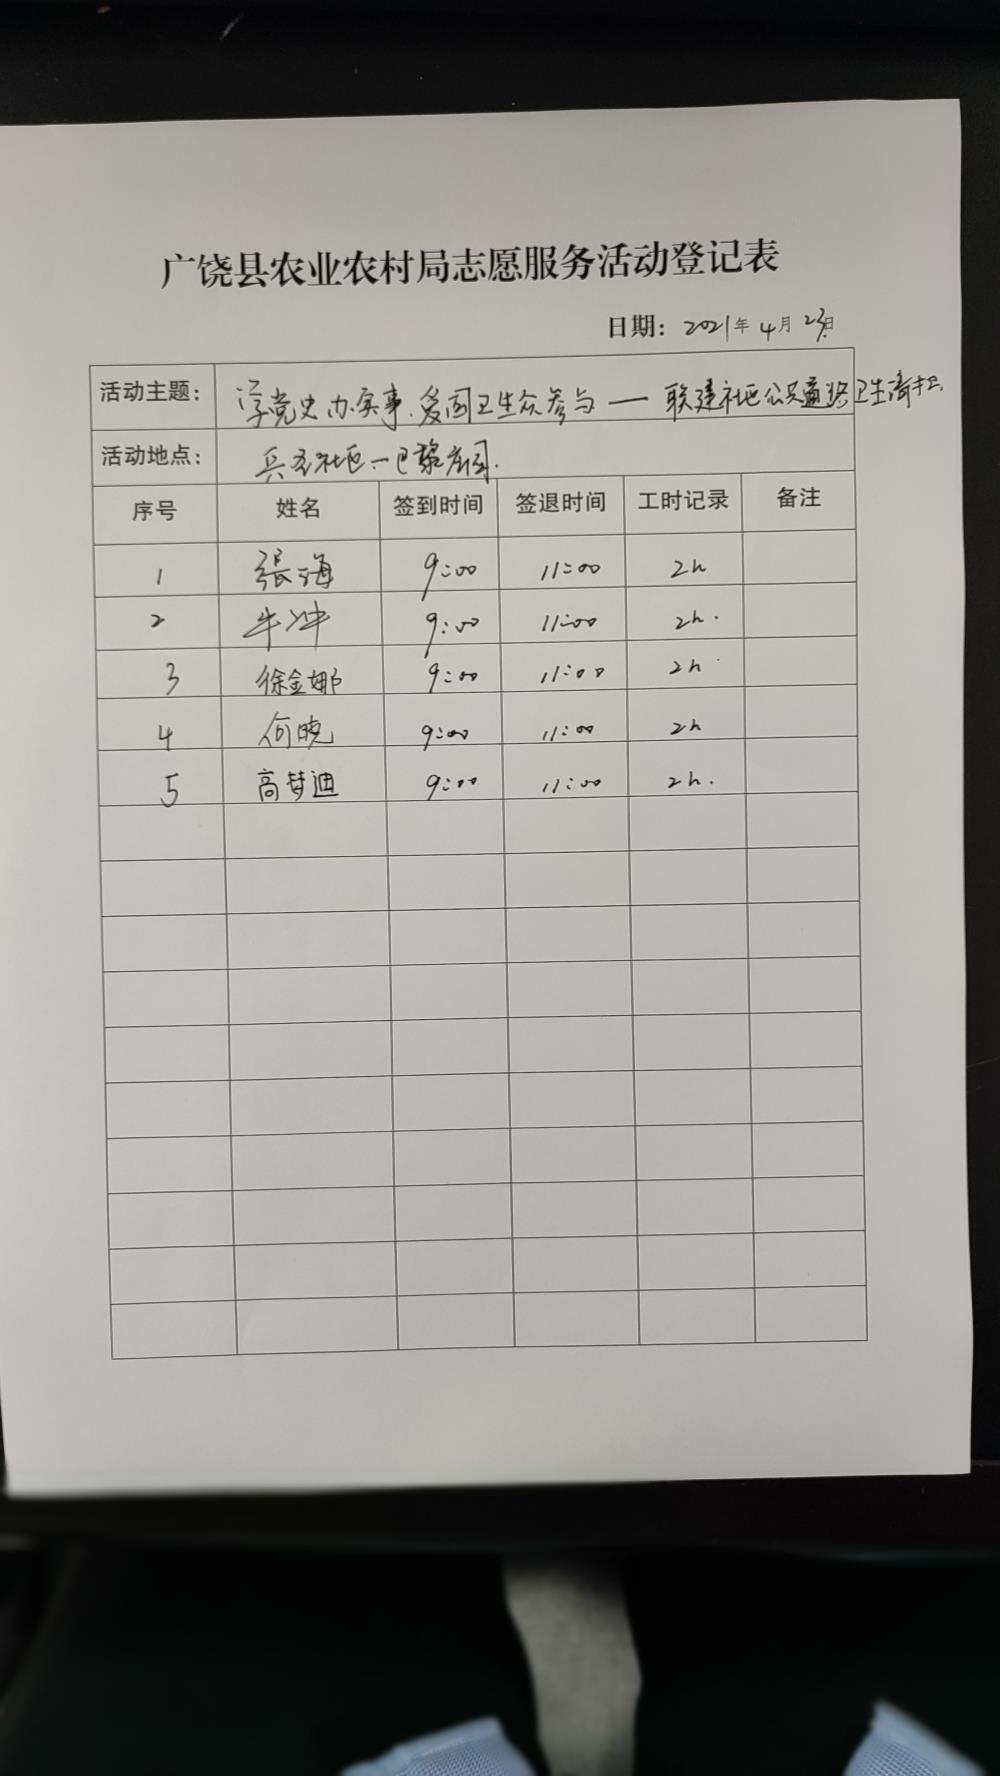 广饶县农业农村局志愿服务活动登记表
日期：2021年4月23日
活动主题： 学党史办实事.爱国卫生众参与—联建社区公共道路卫生清扫.
活动地点： 兵圣社区.巴黎庄园.
序号 姓名 签到时间 签退时间 工时记录 备注
1 张海 9:00 11:00 2h
2 牛冲 9:00 11:00 2h.
3 徐金娜 9:00 11:00 2h
4 何晓 9:00 11:00 2h
5 高梦迪 9:00 11:00 2h.